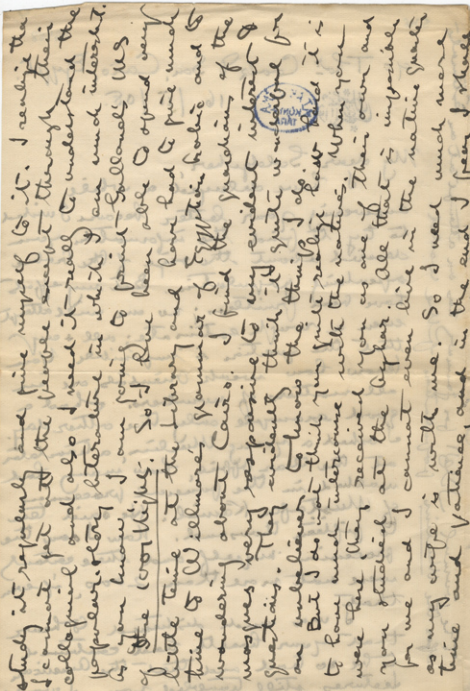 study it regularly and give myself to it. I realize that
I cannot get at the people except through their
colloquial and also I need it really to understand the
popular story literature in which I am much interested.
As you know, I am going to print Galland's MS
of the 1001 Nights. So I have been able to spend very
little time at the Library and have had to give much
time to Willmore's grammar of Egyptian Arabic and to
wandering about Cairo. I find the guardians of the
mosques very responsive to my evident interest &
questions. They evidently think it quite wonderful for
an unbeliever to know the things I do.
But I do not think you quite realize how hard it is
to have much intercourse with the natives. When you
were here they received you as one of their own and
you studied at the Azhar. All that is impossible
for me and I cannot even live in the native quarter
as my wife is with me. So I need much more
time and patience, and in the end, I fear, I shall